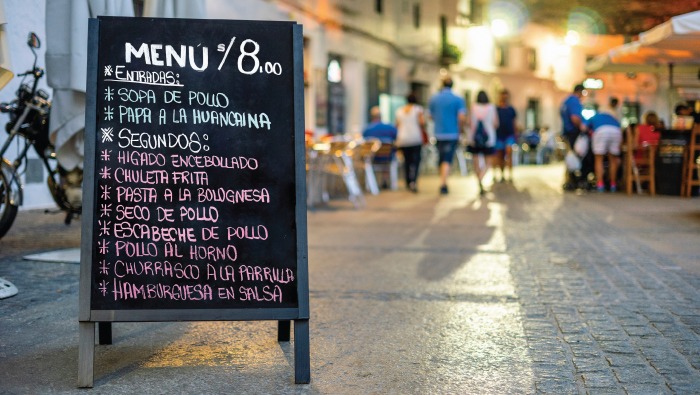 MENU S/8.00
* ENTRADAS:
* SOPA DE POLLO
* PAPA A LA HUANCAINA
* SEGUNDOS:
* HIGADO ENCEBOLLADO
* CHULETA FRITA
* PASTA A LA BOLOGNESA
* SECO DE POLLO
* ESCABECHE DE POLLO
* POLLO AL HORNO
* CHURRASCO A LA PARRILLA
* HAMBURGUESA EN SALSA